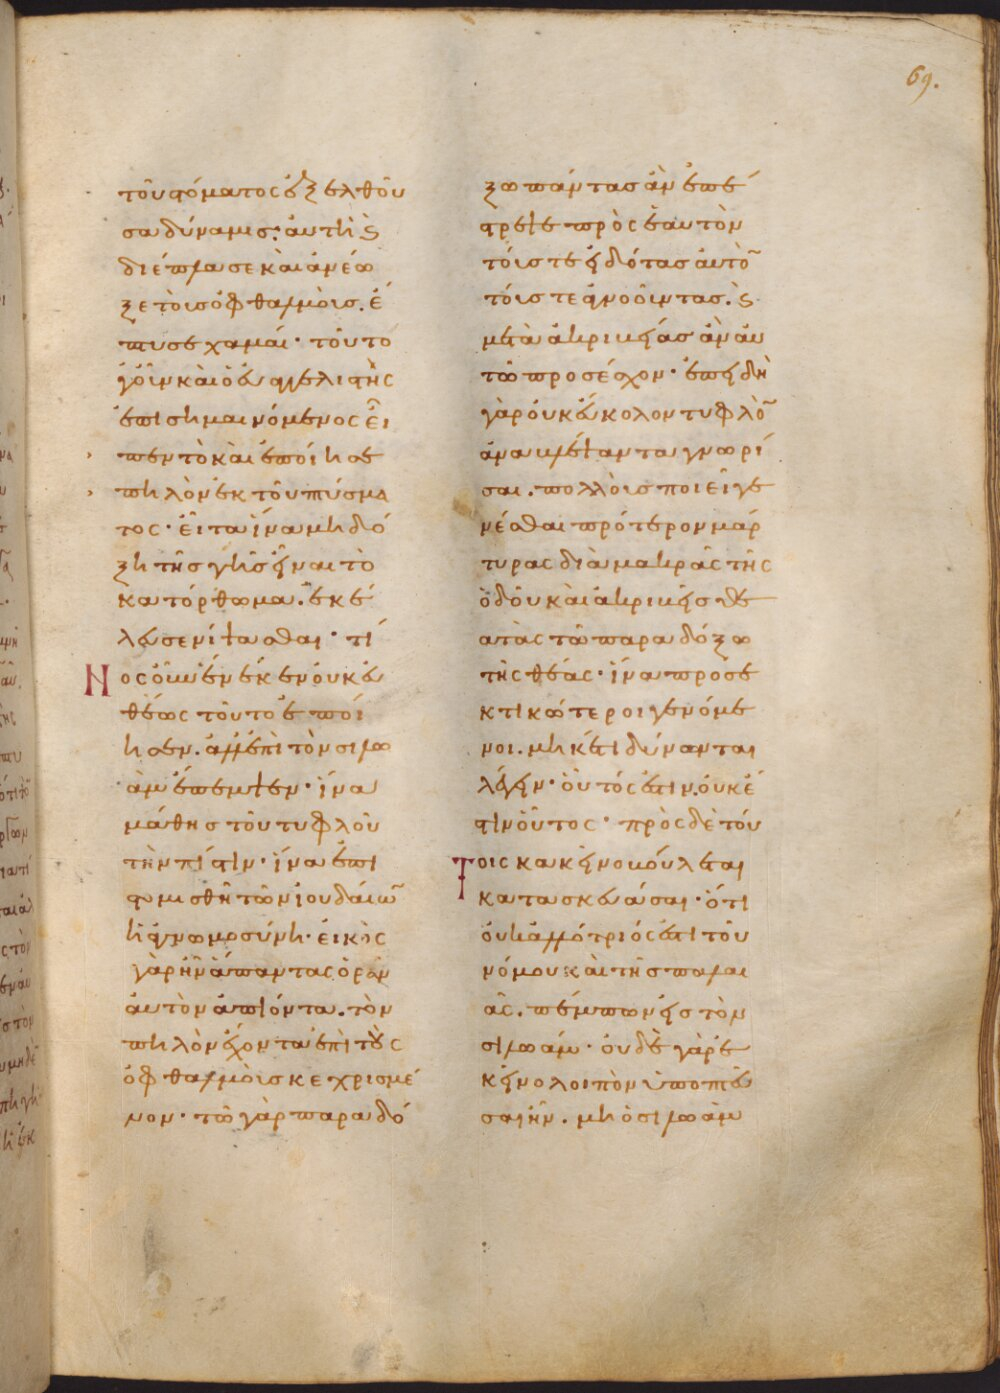 69.
τοῦ στόματος ἐξελθοῦ
σα δύναμις· αὐτὴ ϗ
διέπλασε καὶ ἀνέω
ξε τοῖς ὀφθαλμοῖς. ἔ
πτυσε χαμαί· τοῦτο
γοῦν καὶ ὁ εὐαγγελιστὴς
ἐπισημαινόμενος εἶ
πεν τὸ καὶ ἐποίησε
πηλὸν ἐκ τοῦ πτύσμα
τος· εἶτα ἵνα μὴ δό
ξη τῆς γῆς εἶναι τὸ
κατόρθωμα. ἐκέ
λευσε νίψασθαι· τί
Νος οὖν ἕνεκεν οὐκ εὐ
θέως τοῦτο ἐποί
ησεν. ἀλλ' ἐπὶ τὸν σιλω
ὰμ ἔπεμψεν· ἵνα
μάθης τοῦ τυφλοῦ
τὴν πίστιν· ἵνα ἐπι
στομισθῆ τῶν ἰουδαίω̃
ἡ ἀγνωμοσύνη· εἰκὸς
γὰρ ἦν ἅπαντας ὁρᾶν
αὐτὸν ἀπιόντα. τὸν
πηλὸν ἔχοντα ἐπὶ τοὺς
ὀφθαλμοῖς κεχρισμέ
νον· τῶ γὰρ παραδό
ξω πάντας ἂν ἐπέ
στρεψε πρὸς ἑαυτὸν
τοίς τε εἰδότας αὐτὸ̃
τοίς τε ἀγνοοῦντας. ϗ
μετὰ ἀκριβείας ἂν αὐ
τῶ προσέσχον· ἐπειδὴ
γὰρ οὐκ εὔκολον τυφλὸ̃
ἀναβλέψαντα γνωρί
σαι. πολλοῖς ποιεῖ γε
νέσθαι πρότερον μάρ
τυρας διὰ μακρᾶς τῆς
ὁδοῦ καὶ ἀκριβεῖς θε
ατὰς τῶ παραδόξω
τῆς θέας· ἵνα προσε
κτικώτεροι γενόμε
νοι. μηκέτι δύνανται
λέγειν· οὗτός ἐστιν. οὐκ ἔ
στιν οὗτος· πρὸς δὲ τού
Τοις κακεῖνο βούλεται
κατασκευάσαι· ὅτι
οὐκ ἀλλότριός ἐστι τοῦ
νόμου καὶ τῆς παλαι
ᾶς. πέμπων εἰς τὸν
σιλωάμ· οὐδὲ γὰρ ἐ
κεῖνο λοιπὸν ὑποπτεῦ
σαι ἦν. μὴ ὁ σιλωὰμ